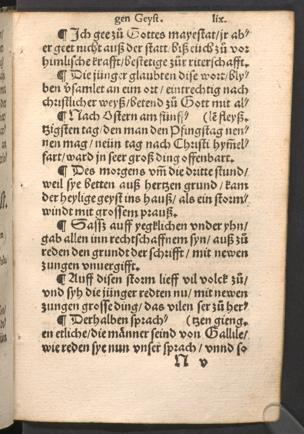 gen Geyst. lix.
¶ Ich gee zů Gottes mayestat/ jr ab⸗
er geet nicht auß der statt/ biß eůch zů vor
himlische krafft/ bestetige zůr riterschafft.
¶ Die jünger glaubten dise wort/ bly⸗
ben v̄samlet an eim ort/ eintrechtig nach
christlicher weyß/ betend zů Gott mit al⸗
¶ Nach Ostern am fünff⸗ (lē fleyß.
tzigsten tag/ den man den Pfingstag nen⸗
nen mag/ neün tag nach Christi hym̄el⸗
fart/ ward jn seer groß ding offenbart.
¶ Des morgens vm̄ die dritte stund/
weil sye betten auß hertzen grund/ kam
der heylige geyst ins hauß/ als ein storm⸗
windt mit grossem prauß.
¶ Sass auff yegklichen vnder yhn/
gab allen inn rechtschaffnem syn/ auß zů
reden den grundt der schrifft/ mit newen
zungen vnuergifft.
¶ Auff disen storm lieff vil volck zů/
vnd syh die jünger redten nu/ mit newen
zungen grosse ding/ das vilen ser zů her⸗
¶ Derhalben sprach⸗ (tzen gieng.
en etliche/ die männer seind von Gallile/
wie reden sye nun vnser sprach/ vnnd so
N v